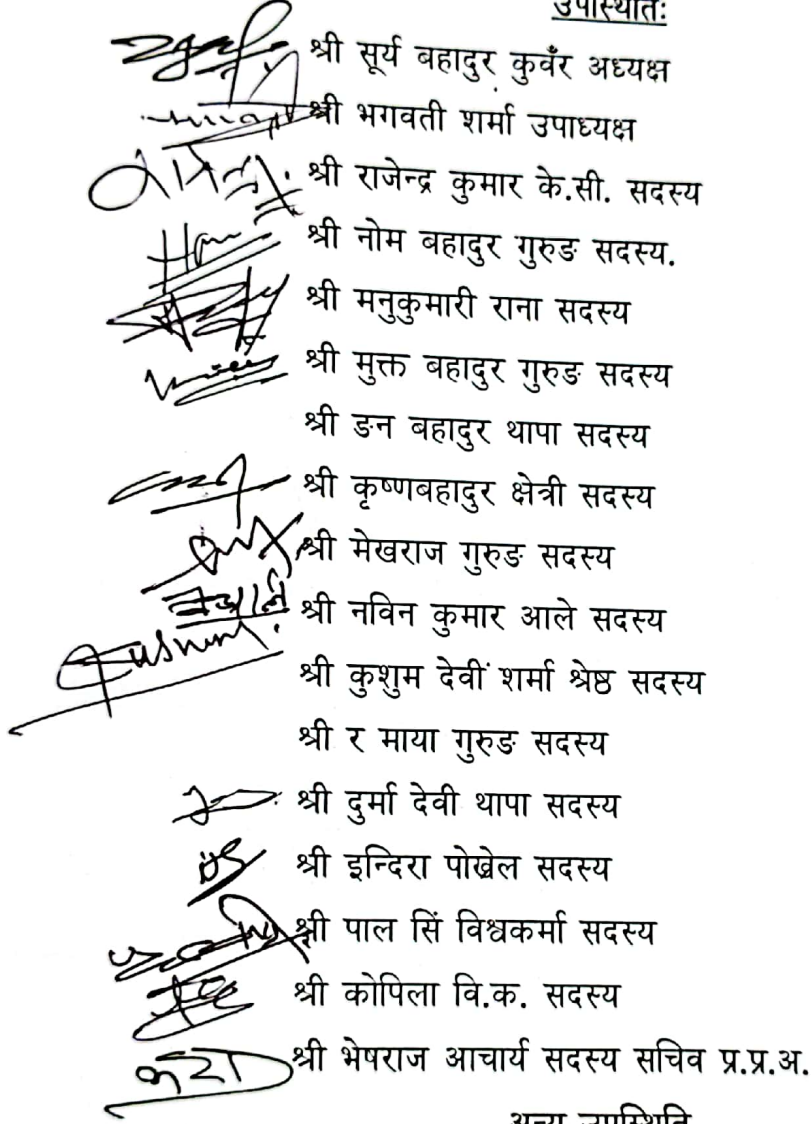 उपस्थितिः
श्री सूर्य बहादुर कुवँर अध्यक्ष
श्री भगवती शर्मा उपाध्यक्ष
श्री राजेन्द्र कुमार के.सी. सदस्य
श्री नोम बहादुर गुरुङ सदस्य.
श्री मनुकुमारी राना सदस्य
श्री मुक्त बहादुर गुरुङ सदस्य
श्री ङन बहादुर थापा सदस्य
श्री कृष्णबहादुर क्षेत्री सदस्य
श्री मेखराज गुरुङ सदस्य
श्री नविन कुमार आले सदस्य
Kushum श्री कुशुम देवीं शर्मा श्रेष्ठ सदस्य
श्री र माया गुरुङ सदस्य
श्री दुर्मा देवी थापा सदस्य
श्री इन्दिरा पोख्रेल सदस्य
श्री पाल सिं विश्वकर्मा सदस्य
श्री कोपिला वि.क. सदस्य
श्री भेषराज आचार्य सदस्य सचिव प्र.प्र.अ.
अन्य उपस्थिति